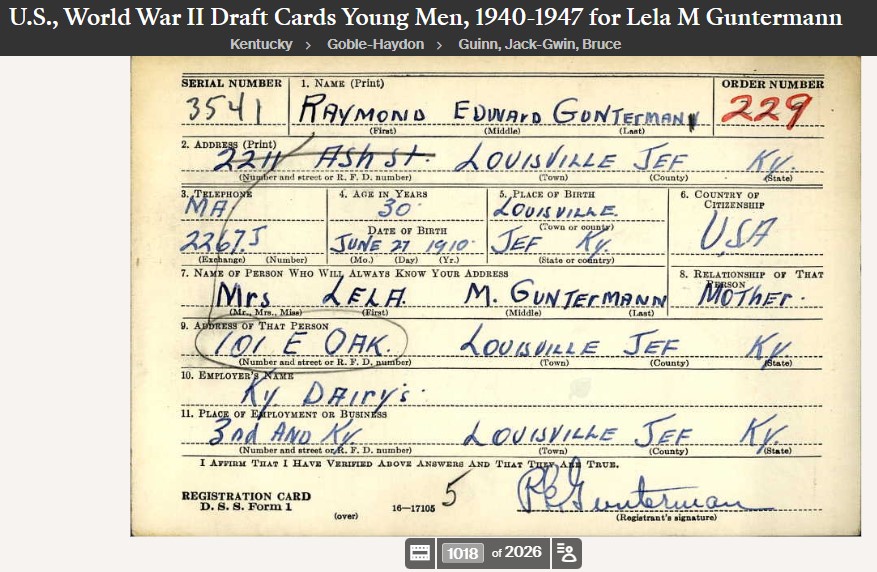 U.S., World War II Draft Cards Young Men, 1940-1947 for Lela M Guntermann
Kentucky > Goble-Haydon > Guinn, Jack-Gwin, Bruce
SERIAL NUMBER 1. NAME (Print) ORDER NUMBER
3541 RAYMOND EDWARD GUNTERMANN 229
(First) (Middle) (Last)
2. ADDRESS (Print)
2211 Ash st. LOUISVILLE JEF Ky.
(Number and street or R. F. D. number) (Town) (County) (State)
3. TELEPHONE 4. AGE IN YEARS 5. PLACE OF BIRTH 6. COUNTRY OF CITIZENSHIP
MA 30 LOUISVILLE.
DATE OF BIRTH (Town or county) USA
2267J JUNE 27 1910 JEF Ky.
(Exchange) (Number) (Mo.) (Day) (Yr.) (State or country)
7. NAME OF PERSON WHO WILL ALWAYS KNOW YOUR ADDRESS 8. RELATIONSHIP OF THAT PERSON
Mrs LELA. M. GUNTERMANN MOTHER.
(Mr., Mrs., Miss) (First) (Middle) (Last)
9. ADDRESS OF THAT PERSON
101 E OAK. LOUISVILLE JEF Ky.
(Number and street or R. F. D. number) (Town) (County) (State)
10. EMPLOYER'S NAME
Ky DAIRy's
11. PLACE OF EMPLOYMENT OR BUSINESS
3nd AND Ky. LOUISVILLE JEF Ky.
(Number and street or R. F. D. number) (Town) (County) (State)
I AFFIRM THAT I HAVE VERIFIED ABOVE ANSWERS AND THAT THEY ARE TRUE.
REGISTRATION CARD 5 RE Gunterman
D. S. S. Form 1 (over) 16—17105 (Registrant's signature)
1018 of 2026